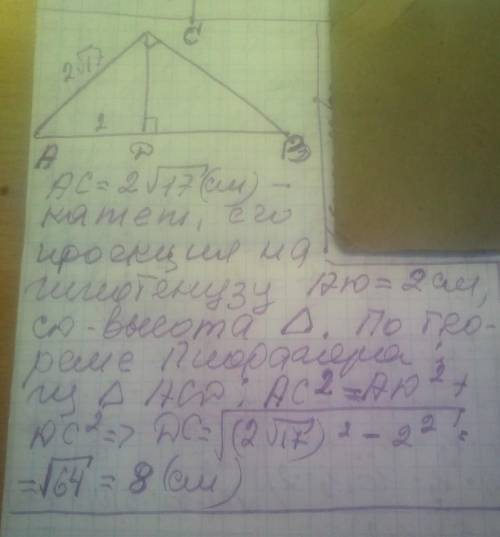 C
2√17
2
А D В
AC = 2√17 (см) –
катет, его
проекция на
гипотенузу AD = 2 см,
CD - высота △. По тео-
реме Пифагора
из △ ACD: AC² = AD² +
DC² => DC = √(2√17)² - 2² =
= √64 = 8 (см)